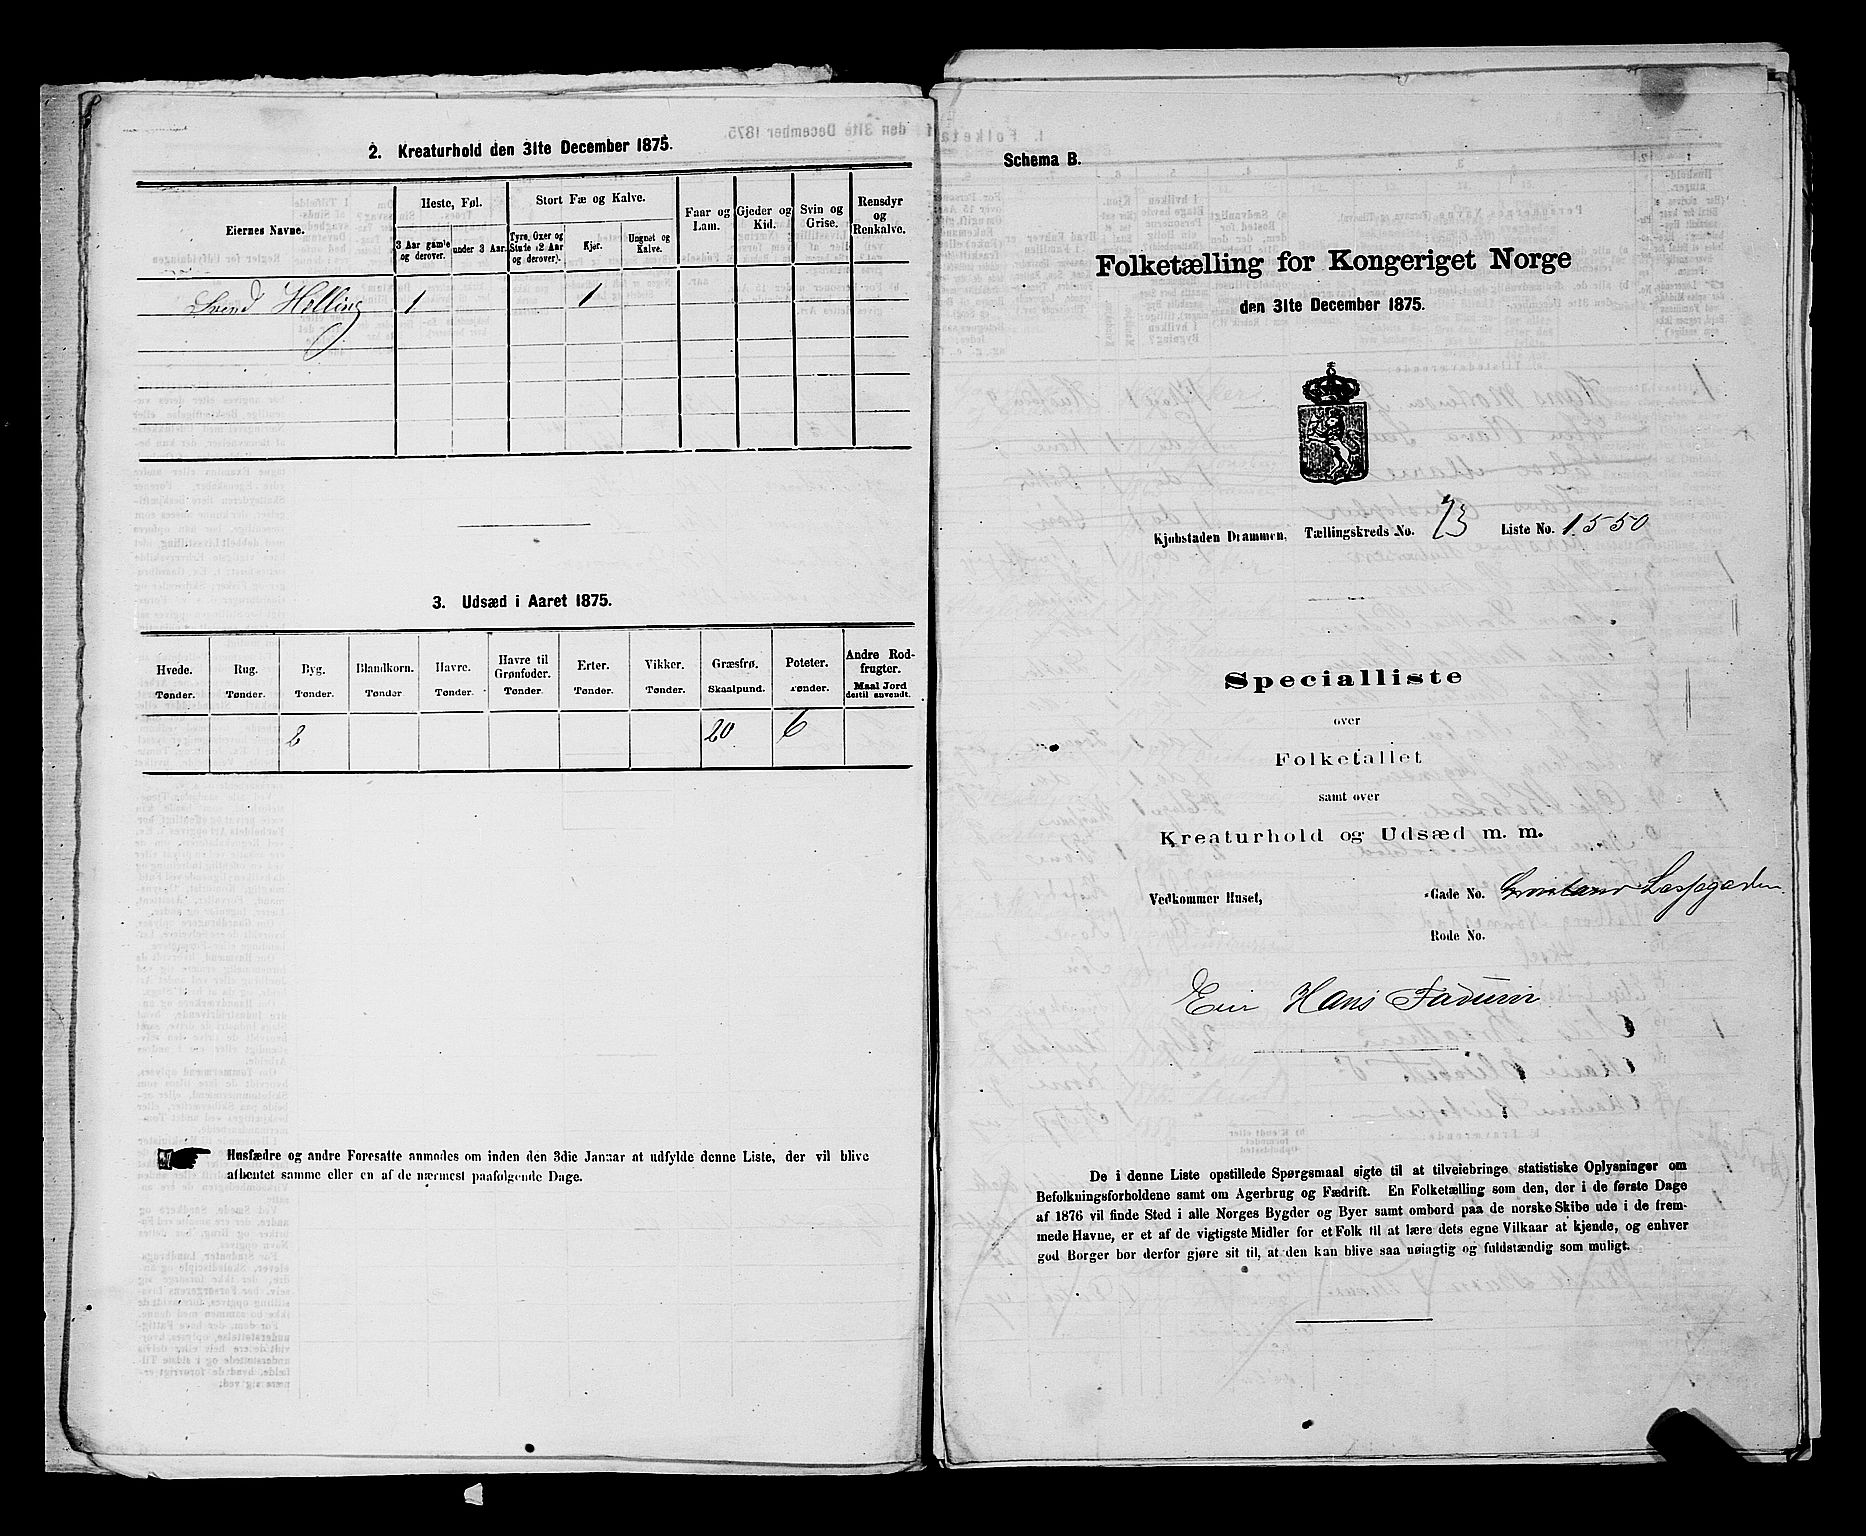 2. Kreaturhold den 31te December 1875.
Eiernes Navne.
Heste, Føl.
Stort Fæ og Kalve.
Faar og Lam.
Gjeder og Kid.
Svin og Grise.
Rensdyr og Renkalve.
3 Aar gamle og derover.
under 3 Aar.
Tyre, Oxer og Stude (2 Aar og derover).
Kjør.
Ungnøt og Kalve.
Svend Helling 1 1
3. Udsæd i Aaret 1875.
Hvede. Rug. Byg. Blandkorn. Havre. Havre til Grønfoder. Erter. Vikker. Græsfrø. Poteter. Andre Rodfrugter.
Tønder. Tønder. Tønder. Tønder Tønder. Tønder. Tønder. Tønder. Skaalpund. Tønder. Maal Jord dertil anvendt.
2 20 6
Husfædre og andre Foresatte anmodes om inden den 3die Januar at udfylde denne Liste, der vil blive
afhentet samme eller en af de nærmest paafølgende Dage.
Schema B.
Folketælling for Kongeriget Norge
den 31te December 1875.
Kjøbstaden Drammen, Tællingskreds No. 23 Liste No. 1550
Specialliste
over
Folketallet
samt over
Kreaturhold og Udsæd m. m.
Vedkommer Huset, Gade No.
Rode No.
Eier Hans Fadum
De i denne Liste opstillede Spørgsmaal sigte til at tilveiebringe statistiske Oplysninger om
Befolkningsforholdene samt om Agerbrug og Fædrift. En Folketælling som den, der i de første Dage
af 1876 vil finde Sted i alle Norges Bygder og Byer samt ombord paa de norske Skibe ude i de frem-
mede Havne, er et af de vigtigste Midler for et Folk til at lære dets egne Vilkaar at kjende, og enhver
god Borger bør derfor gjøre sit til, at den kan blive saa nøiagtig og fuldstændig som muligt.